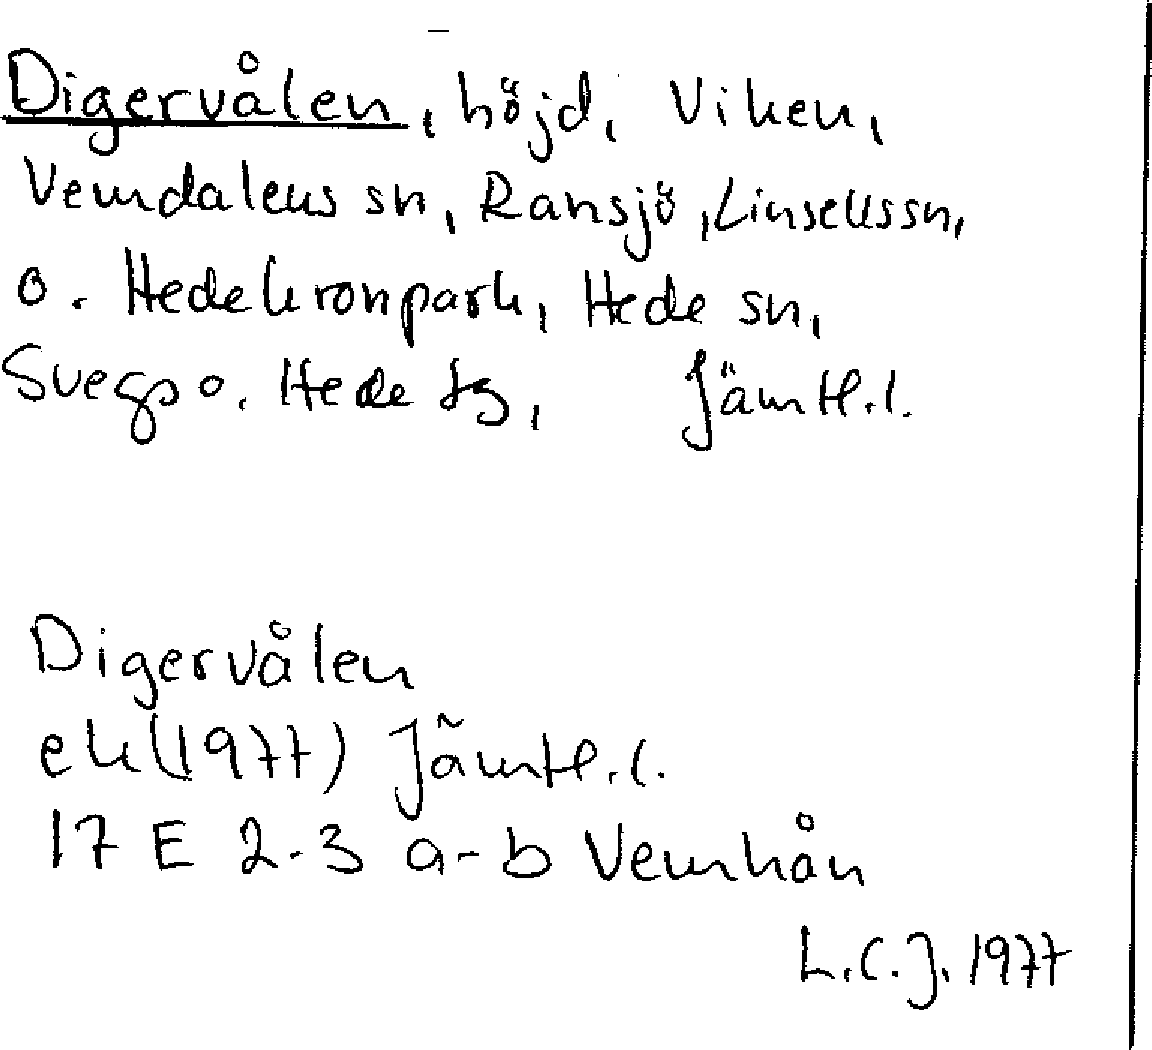 Digervålen, höjd, Viken,
Vemdalens sn, Ransjö, Linsells sn,
o. Hede kronpark, Hede sn,
Svegs o. Hede tg, Jämtl.l.
Digervålen
ek (1977) Jämtl.l.
17 E 2-3 a-b Vemhån
L.C.J. 1977